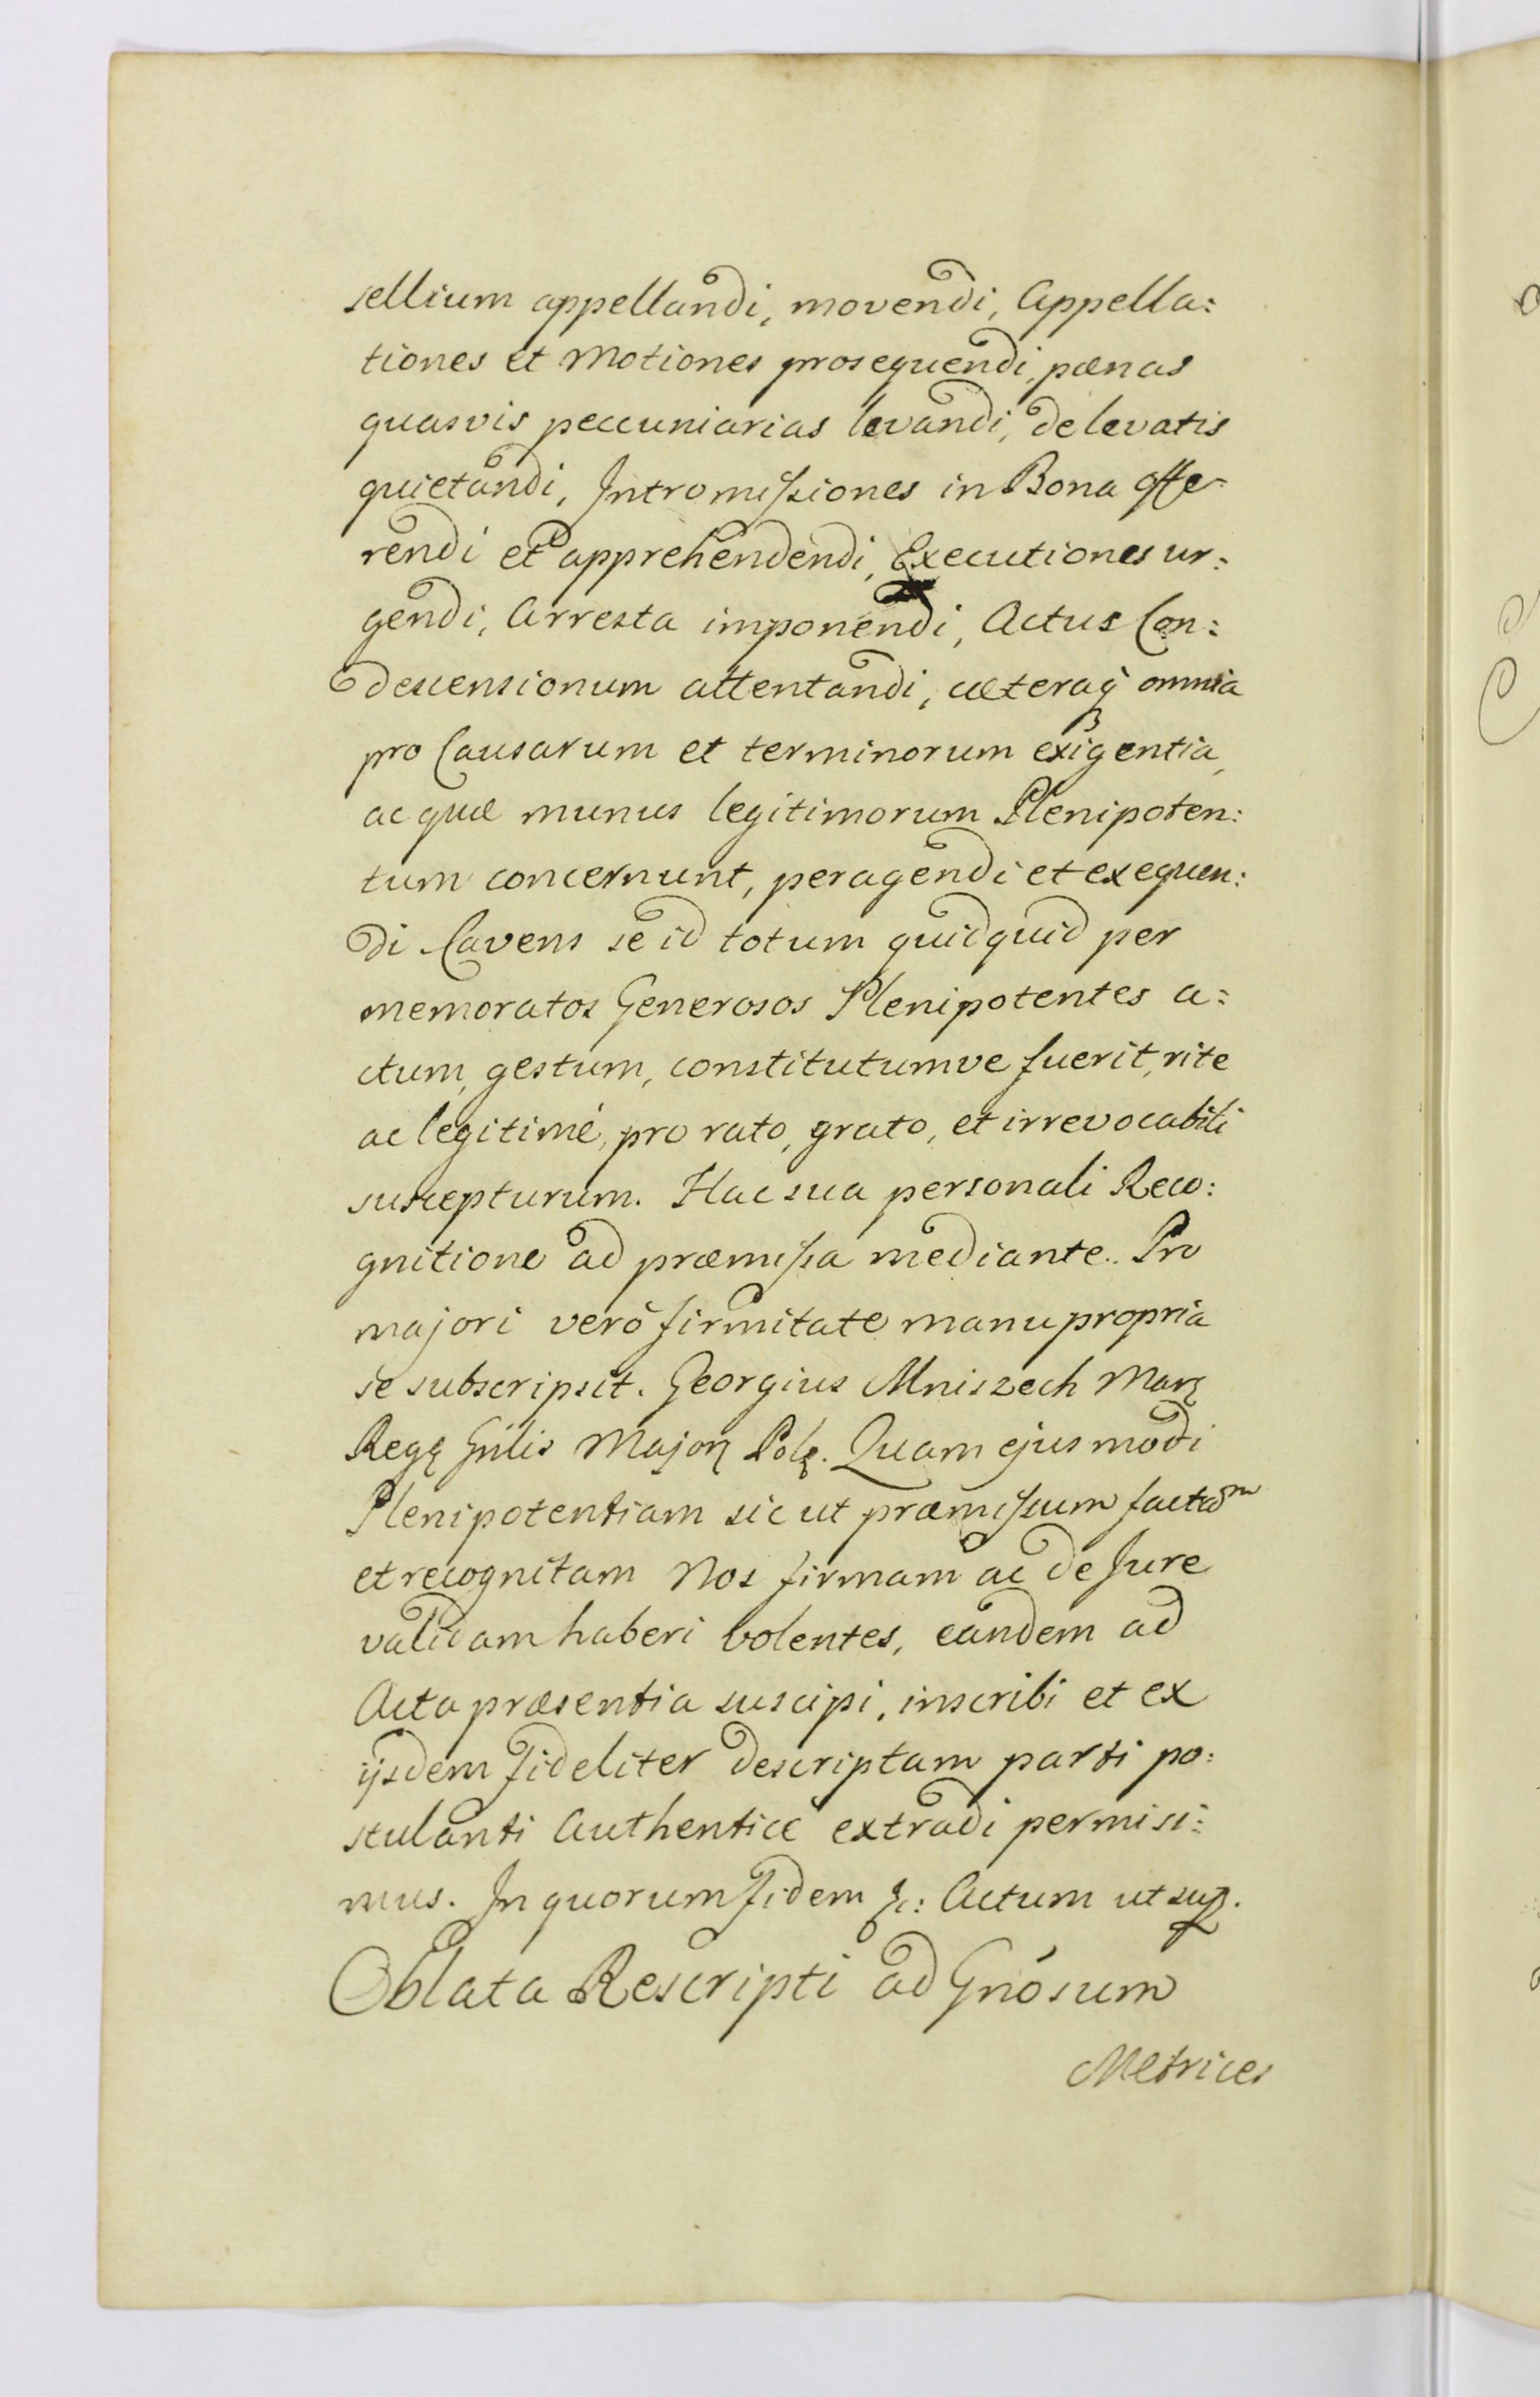 sellium appellandi, movendi, Appella:
tiones et Motiones prosequendi, pænas
quasvis peccuniarias levandi, de levatis
quietandi, Intromissiones in Bona offe-
rendi et apprehendendi, Executiones ur:
gendi, Arresta imponendi, Actus Con:
descensionum attentandi, cæteraq omnia
pro Causarum et terminorum exigentia,
ac quæ munus legitimorum Plenipoten:
tum concernunt, peragendi et exequen:
di Cavens se id totum quidquid per
memoratos Generosos Plenipotentes a:
ctum, gestum, constitutumve fuerit, rite
ac legitimé, pro rato, grato, et irrevocabili
suscepturum. Hac sua personali Reco:
gnitione ad præmissa mediante. Pro
majori veró firmitate manu propria
se subscripsit. Georgius Mniszech Mar
Reg Gnlis Major Pol. Quam ejusmodi
Plenipotentiam sic ut præmissum factam
et recognitam Nos firmam ac de Jure
validam haberi volentes, eandem ad
Acta præsentia suscipi, inscribi et ex
ijsdem fideliter descriptam parti po:
stulanti Authenticè extradi permisi:
mus. In quorum fidem &c: Actum ut sup.
Oblata Rescripti ad Gnósum
Metrices